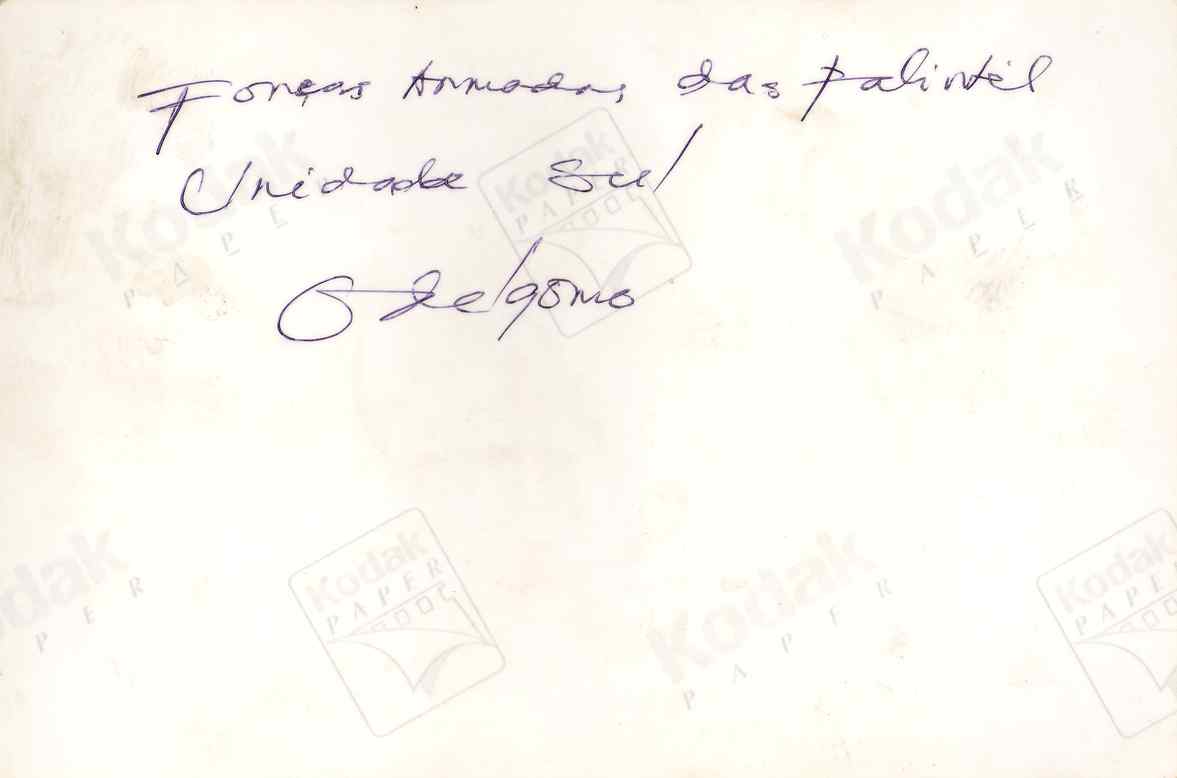 Forças Armadas das Falintil
Unidade Sul
Kodak
PAPER
Kodak
PAPER
Kodak
PAPER
Kodak
PAPER
Kodak
PAPER
Kodak
PAPER
Kodak
PAPER